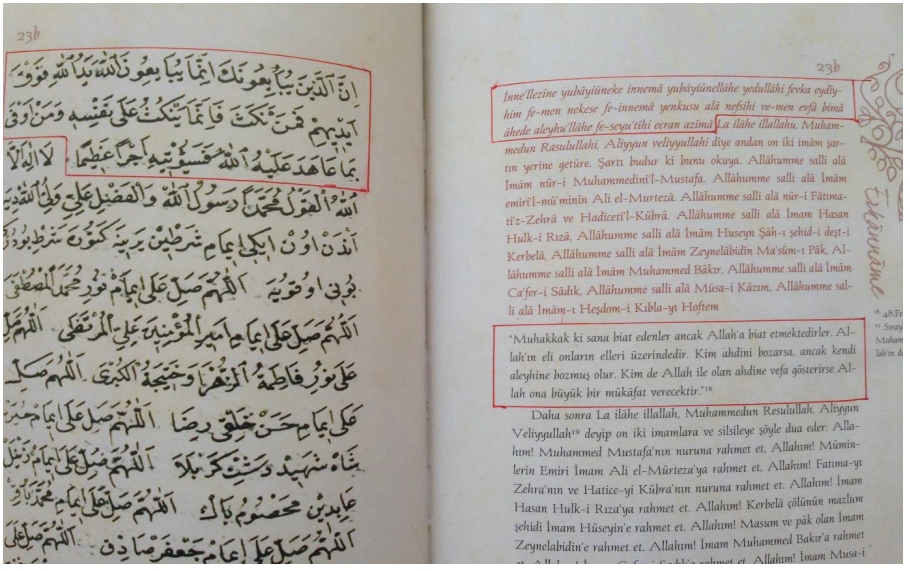 23b
اِنَّ الَّذينَ يُبَايِعُونَكَ اِنَّمَا يُبَايِعُونَ اللّٰهَ يَدُ اللّٰهِ فَوْقَ
اَيْدِيهِمْ فَمَنْ نَكَثَ فَاِنَّمَا يَنْكُثُ عَلٰى نَفْسِهِ وَمَنْ اَوْفٰى
بِمَا عَاهَدَ عَلَيْهُ اللّٰهَ فَسَيُؤْتِيهِ اَجْرًا عَظِيمًا لَا اِلٰهَ اِلَّا
اللّٰهُ مُحَمَّدًا رَسُولُ اللّٰهِ عَلِيٌّ وَلِيُّ اللّٰه
اَنْدَنْ اون ايكى اِمَامِ شَرطِين يَرينَه
اَللّٰهُمَّ صَلِّ عَلٰى اِمَامِ نُورِ مُحَمَّدِ الْمُصْطَفٰى
اَللّٰهُمَّ صَلِّ عَلٰى اِمَامِ اَمِيرِ الْمُؤْمِنِينَ عَلِيِّ الْمُرْتَضٰى اَللّٰهُمَّ صَلِّ
عَلٰى نُورِ فَاطِمَةُ الزَّهْرَا وَخَدِيجَةُ الْكُبْرٰى اَللّٰهُمَّ صَلِّ
عَلٰى اِمَامِ حَسَنْ خُلْقِ رِضَا اَللّٰهُمَّ صَلِّ عَلٰى اِمَامِ حُسَيْن
شَاه شَهِيد دَشْتِ كَرْبَلَا اَللّٰهُمَّ صَلِّ عَلٰى اِمَامِ زَيْنُ
عَابِدِين مَعْصُومِ پَاك اَللّٰهُمَّ صَلِّ عَلٰى اِمَامِ مُحَمَّد بَاقِر
اَللّٰهُمَّ صَلِّ عَلٰى اِمَامِ جَعْفَرِ صَادِق اَللّٰهُمَّ صَلِّ عَلٰى
23b
İnne'llezîne yubâyiûneke innemâ yubâyiûnellâhe yedullâhi fevka eydîy-
him fe-men nekese fe-innemâ yenkusu alâ nefsihi ve-men evfâ bimâ
âhede aleyhu'llâhe fe-seyu'tihi ecran azîmâ La ilâhe illallahu, Muham-
medun Rasulullahi, Aliyyun veliyyullahi diye andan on iki imâm şar-
tın yerine getüre. Şartı budur ki bunu okuya. Allâhumme salli alâ
İmâm nûr-i Muhammedini'l-Mustafa. Allâhumme salli alâ İmâm
emiri'l-mü'minîn Ali el-Murtezâ. Allâhumme salli alâ nûr-i Fâtıma-
ti'z-Zehrâ ve Hadiceti'l-Kübrâ. Allâhumme salli alâ İmam Hasan
Hulk-i Rızâ, Allâhumme salli alâ İmâm Huseyn Şâh-ı şehid-i deşt-i
Kerbelâ, Allâhumme salli alâ İmâm Zeynelâbidîn Ma'sûm-ı Pâk, Al-
lâhumme salli alâ İmâm Muhammed Bâkır, Allâhumme salli alâ İmâm
Ca'fer-i Sâdık, Allâhumme salli alâ Mûsa-i Kâzım, Allâhumme sal-
li alâ İmâm-ı Heşdom-i Kıbla-yı Hoftem
"Muhakkak ki sana biat edenler ancak Allah'a biat etmektedirler. Al-
lah'ın eli onların elleri üzerindedir. Kim ahdini bozarsa, ancak kendi
aleyhine bozmuş olur. Kim de Allah ile olan ahdine vefa gösterirse Al-
lah ona büyük bir mükâfat verecektir."¹⁸
Daha sonra La ilâhe illallah, Muhammedun Resulullah, Aliyyun
Veliyyullah¹⁹ deyip on iki imamlara ve silsileye şöyle dua eder: Alla-
hım! Muhammed Mustafa'nın nuruna rahmet et, Allahım! Mümin-
lerin Emiri İmam Ali el-Mürteza'ya rahmet et, Allahım! Fatıma-yı
Zehra'nın ve Hatice-yi Kübra'nın nuruna rahmet et. Allahım! İmam
Hasan Hulk-i Rıza'ya rahmet et. Allahım! Kerbelâ çölünün mazlum
şehidi İmam Hüseyin'e rahmet et. Allahım! Masum ve pâk olan İmam
Zeynelabidin'e rahmet et. Allahım! İmam Muhammed Bakır'a rahmet
et. Allahım! İmam Musa-i
Erkânnâme
¹⁸ 48.Fe
Muham
lah'ın d